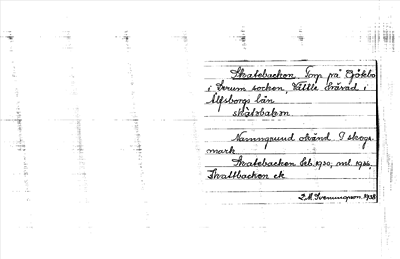 Skatebacken. Torp på Sjökbo
i Lerum socken, Vättle härad i
Älfsborgs län
skàtəbakən
Namngrund okänd. I skogs
mark
Skatebacken hfb. 1930, ml 1966,
Skattbacken ek
1938